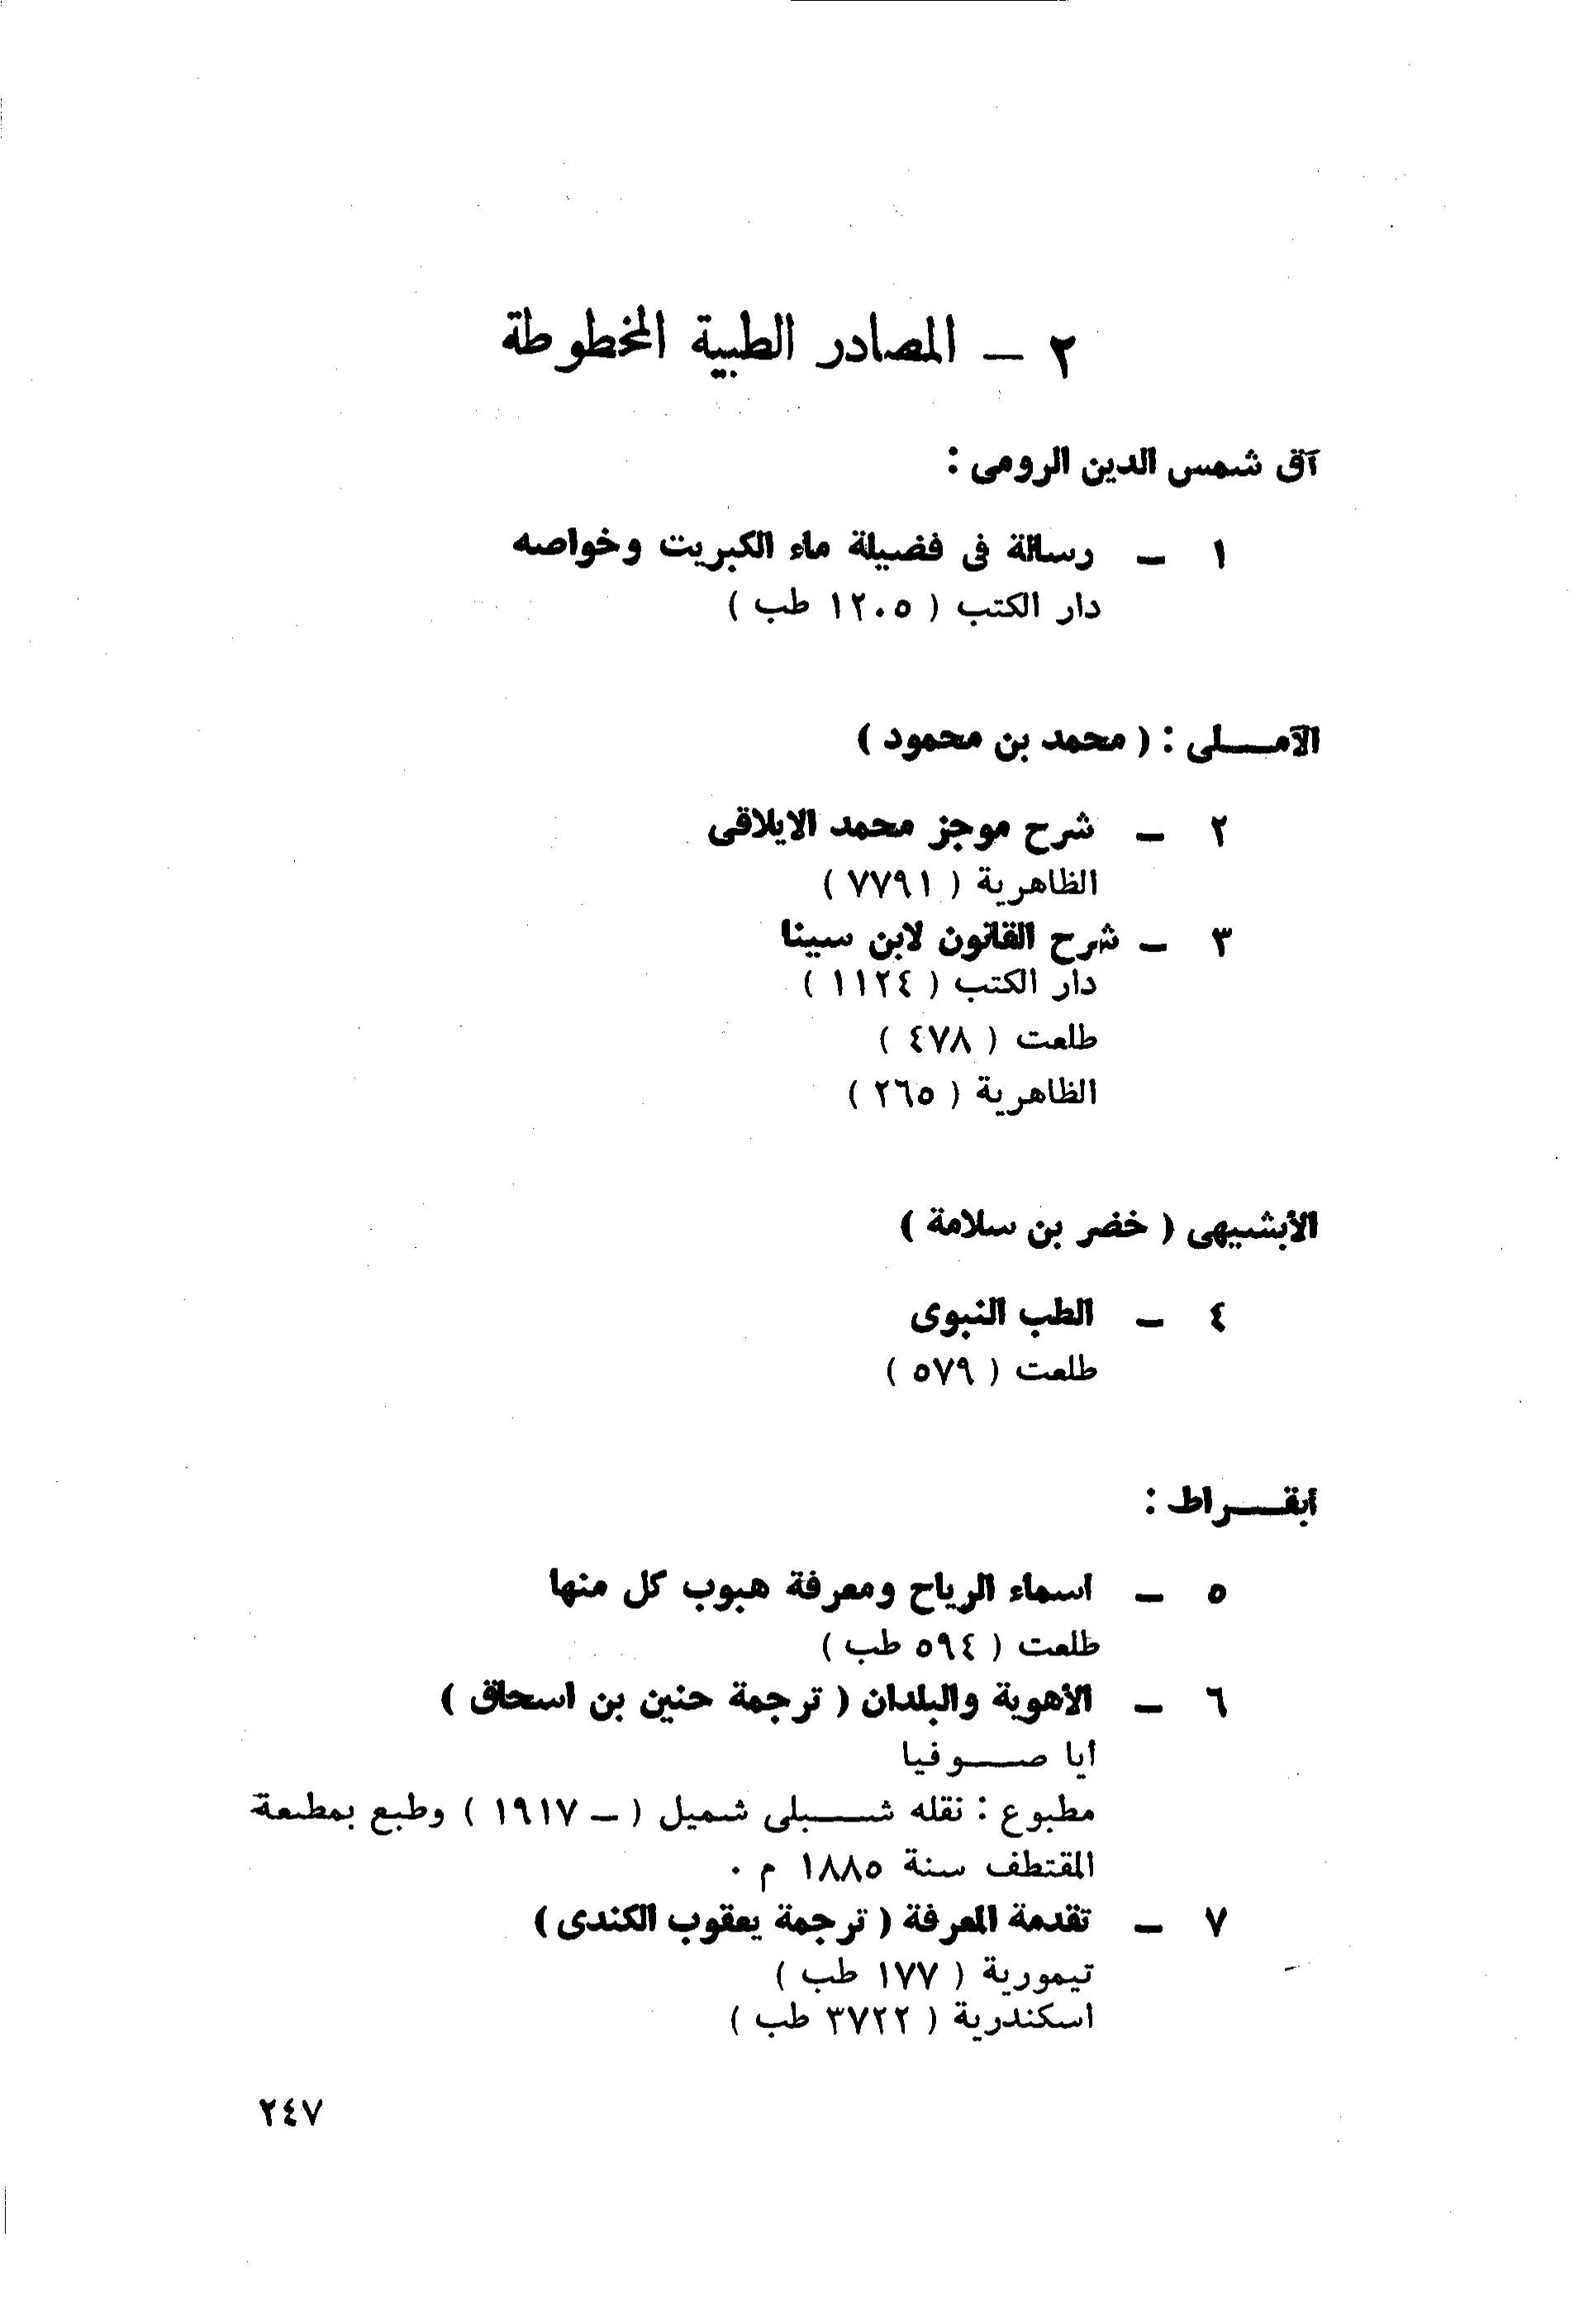 ٢ – المصادر الطبية المخطوطة
آق شمس الدين الرومى :
١ – رسالة فى فضيلة ماء الكبريت وخواصه
دار الكتب ( ١٢٠٥ طب )
الآمـــلى : ( محمد بن محمود )
٢ – شرح موجز محمد الايلاقى
الظاهرية ( ٧٧٩١ )
٣ – شرح القانون لابن سينا
دار الكتب ( ١١٢٤ )
طلعت ( ٤٧٨ )
الظاهرية ( ٢٦٥ )
الأبشيهى ( خضر بن سلامة )
٤ – الطب النبوى
طلعت ( ٥٧٩ )
أبقـــراط :
٥ – اسماء الرياح ومعرفة هبوب كل منها
طلعت ( ٥٩٤ طب )
٦ – الأهوية والبلدان ( ترجمة حنين بن اسحاق )
أيا صـــوفيا
مطبوع : نقله شـــبلى شميل ( – ١٩١٧ ) وطبع بمطبعة
المقتطف سنة ١٨٨٥ م .
٧ – تقدمة المعرفة ( ترجمة يعقوب الكندى )
تيمورية ( ١٧٧ طب )
اسكندرية ( ٣٧٢٢ طب )
٢٤٧